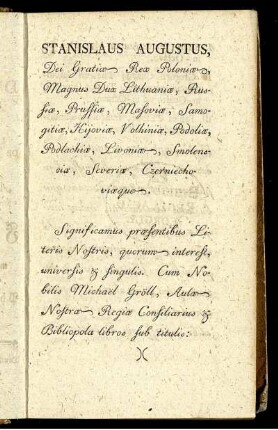 STANISLAUS AUGUSTUS,
Dei Gratia Rex Poloniæ,
Magnus Dux Lithuaniæ, Rus-
siæ, Prussiæ, Masoviæ, Samo-
gitiæ, Kijoviæ, Volhiniæ, Podoliæ,
Podlachiæ, Livoniæ, Smolens-
ciæ, Severiæ, Czerniecho-
viæque.
Significamus præsentibus Li-
teris Nostris, quorum interest,
universis & singulis. Cum No-
bilis Michaël Gröll, Aulæ
Nostræ Regiæ Consiliarius &
Bibliopola libros sub titulis: